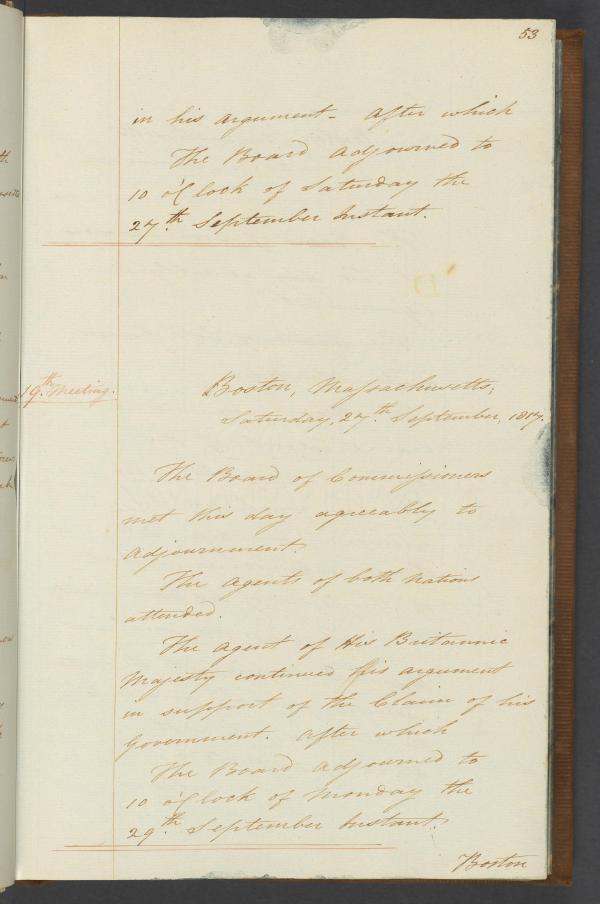 53
in his argument - After which
The Board adjourned to
10 o'Clock of Saturday the
27.th September Instant.
19.th Meeting.
Boston, Massachusetts,
Saturday, 27.th September, 1817.
The Board of Commissioners
met this day agreeably to
adjournment.
The Agents of both nations
attended.
The Agent of His Britannic
Majesty continued his argument
in support of the Claim of his
Government. After which
The Board adjourned to
10 o'Clock of Monday the
29.th September Instant.
Boston